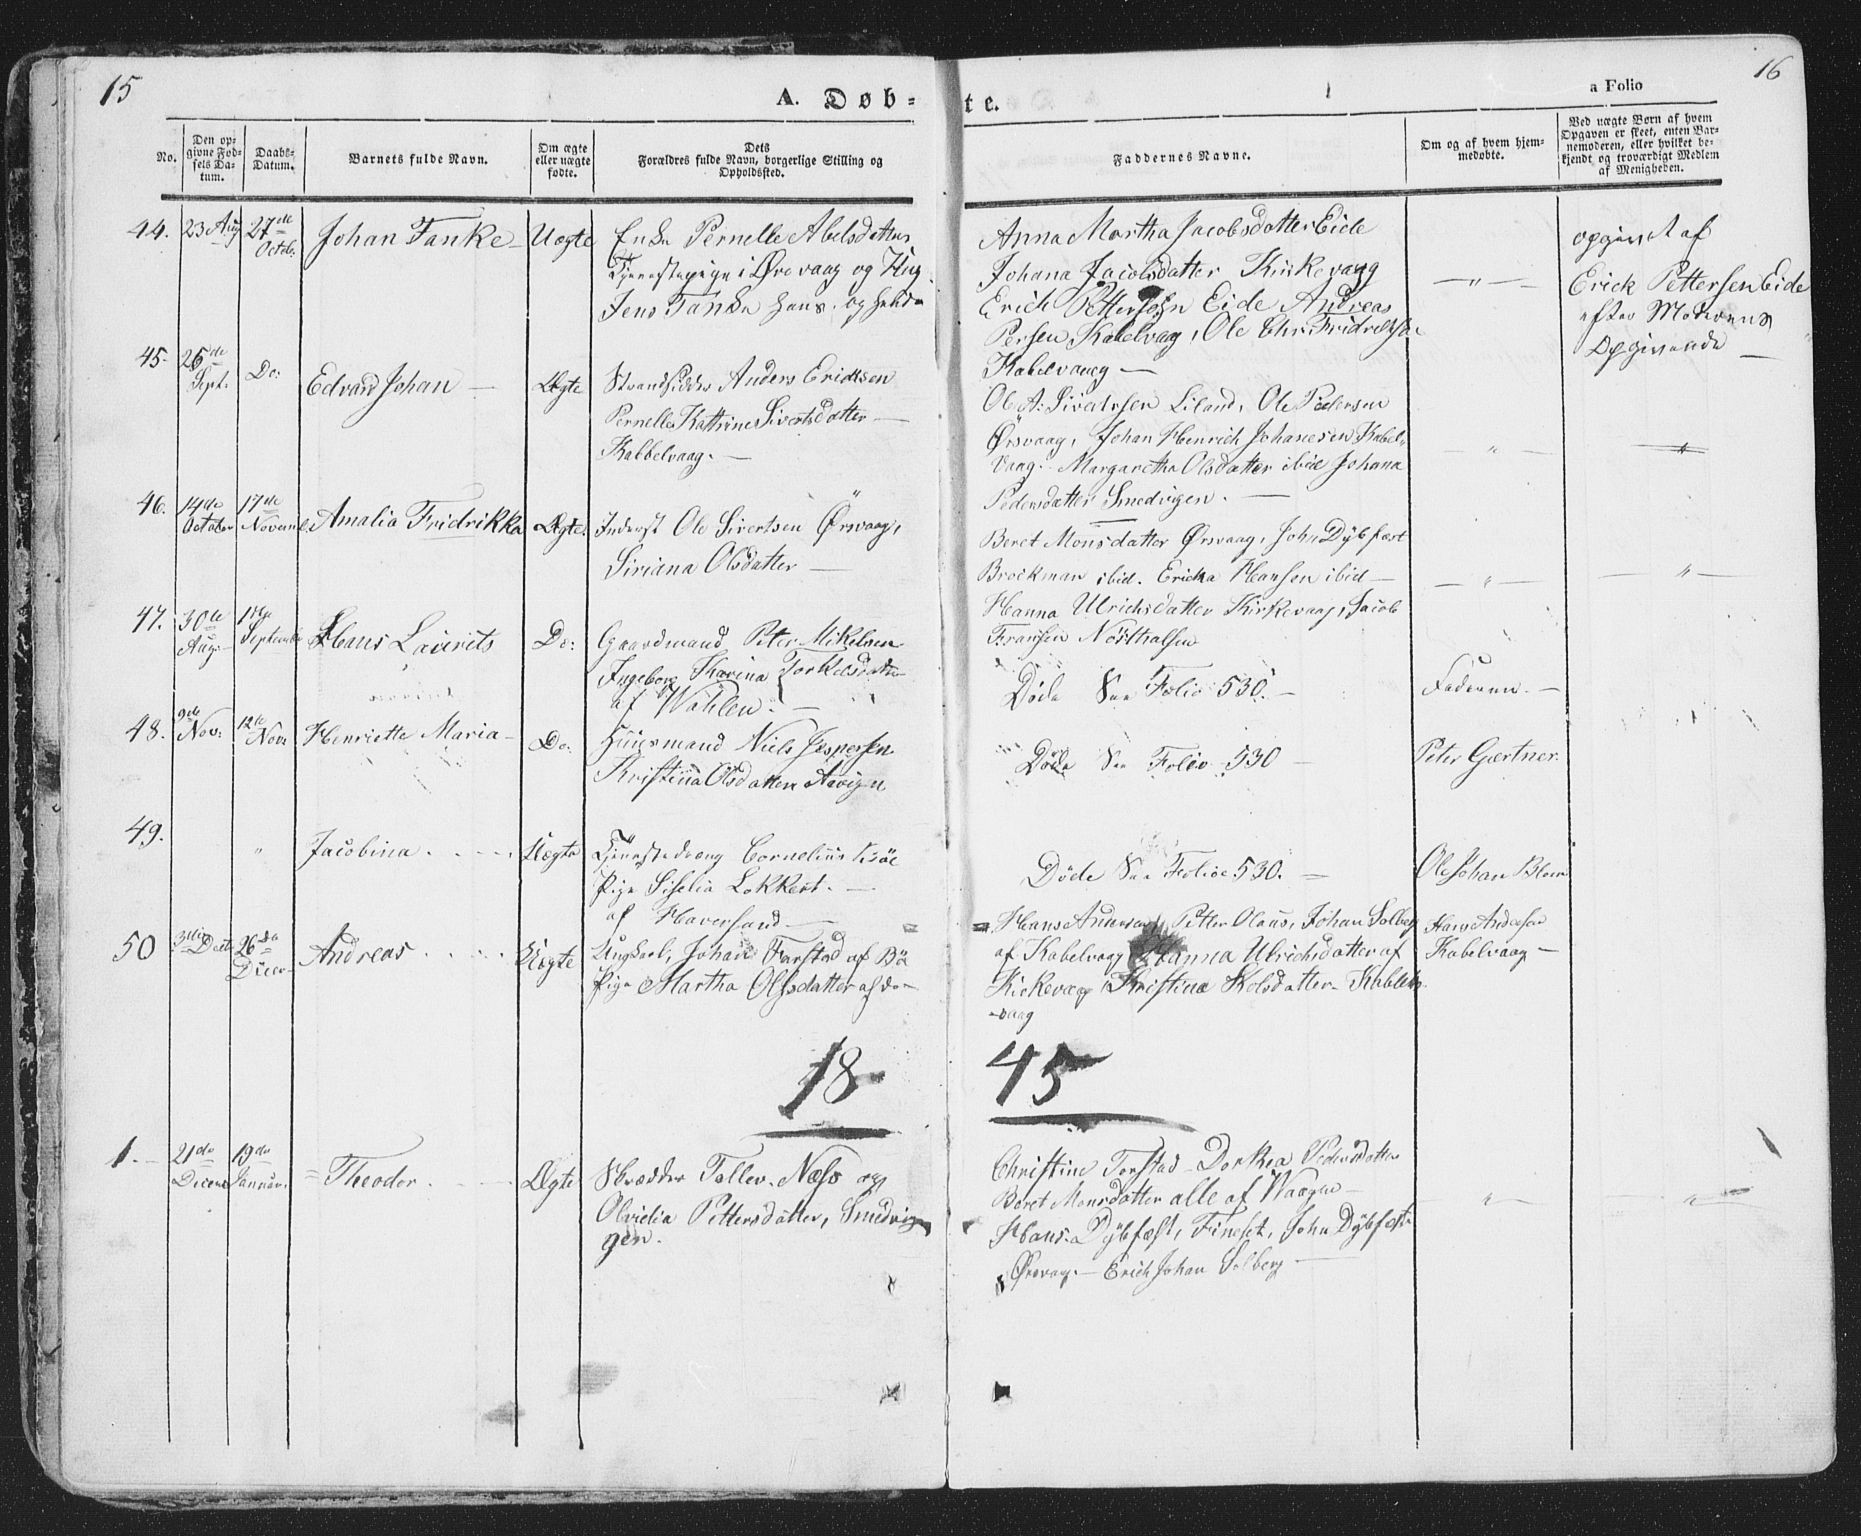 15
16
A. Døb-
te.
a Folio
No.
Den op-
givne Fød-
sels Da-
tum.
Daabs-
Datum.
Barnets fulde Navn.
Om ægte
eller uægte
fødte.
Dets
Forældres fulde Navn, borgerlige Stilling og
Opholdssted.
Faddernes Navne.
Om og af hvem hjem-
medøbte.
Ved uægte Børn af hvem
Opgaven er skeet, enten Bar-
nemoderen, eller hvilket be-
kjendt og troværdigt Medlem
af Menigheden.
44.
23 Aug
27de
Octob.
Johan Tanke
Uægte
Enke Pernelle Abelsdatter
Tjenestepige i Ørsvaag og
Jens Tanke
Anna Martha Jacobsdatter Eide
Johana Jacobsdatter Kirkevaag
Erich Pettersen Eide Andreas
Persen Kabelvaag, Ole Chr. Fridrichsen
Kabelvaag —
— " —
opgivet af
Erick Pettersen Eide
efter Moderens
Opgivende —
45.
26de
Sept.
Do:
Edvard Johan —
Ægte
Strandsidder Anders Erichsen
Pernelle Kattrine Sivertsdatter —
Kabbelvaag. —
Ole A. Sivertsen Liland, Ole Pedersen
Ørsvaag, Johan Henrich Johanesen Kabel-
vaag. Margaretha Olsdatter ibid Johana
Pedersdatter Smedvigen. —
— " —
— " —
46.
14de
October
17de
Novemb.
Amalia Fridrikka
Ægte.
Inderst Ole Sivertsen Ørsvaag,
Siriana Olsdatter —
Beret Monsdatter Ørsvaag, John Dybfæst
Brockman ibid. Ericka Hansen ibid —
Hanna Ulrichsdatter Kirkevaag, Jacob
Fransen Nösthalsen
— " —
— " —
47.
30te
Aug:
September
Hans Laurits
Do:
Gaardmand Peter Mikelsen
Ingeborg Karina Torkelsdatter
af Wahlen. —
Døde See Folio 530. —
Faderen. —
48.
9de
Nov:
12te
Nov:
Henriette Maria —
Do:
Huusmand Niels Jespersen
Kristina Olsdatter Aavigen
Døde See Folio 530 —
Peter Gærtner.
49.
"
Jacobina . . . .
Uægte
Tjenestedreng Cornelius
Pige Siselia Lokkert. —
af Haversand —
Døde See Folio 530. —
Ole Johan Blom
50
26de
Decer
Andreas . . . .
Uægte
Ungkarl, Johan Farstad af Bö
Pige Martha Olsdatter af do —
Hans Andersen, Petter Olaus, Johan Solberg
af Kabelvaag Hanna Ulrichsdatter af
Kirkevaag Kristina Kolsdatter Kabbel-
vaag
Hans Andersen
Kabelvaag —
18
45
1. —
21de
Decem
19de
Januar.
= Theodor. — —
Ægte
Skrædder Toller Næss og
Olvidia Pettersdatter, Smedvig-
gen.
Christine Torstad — Dorthea Pedersdatter
Beret Monsdatter alle af Waagen —
Hans Dybfæst, Finset, John Dybfæst
Ørsvaag. — Erich Johan Solberg —
— " —
— " —